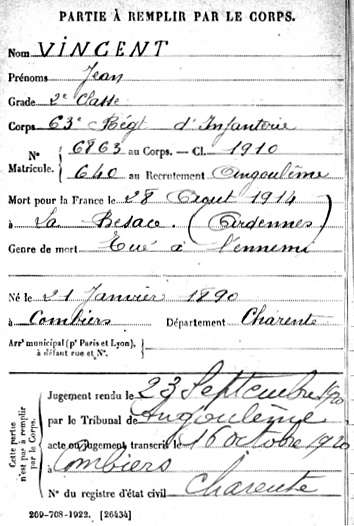 PARTIE À REMPLIR PAR LE CORPS.
Nom VINCENT
Prénoms Jean
Grade 2e Classe
Corps 63e Régt d'Infanterie
N° Matricule. { 6863 au Corps. — Cl. 1910
640 au Recrutement Angoulême
Mort pour la France le 28 Août 1914
à La Besace. (Ardennes)
Genre de mort Tué à l'ennemi
Né le 21 Janvier 1890
à Combiers Département Charente
Arrt municipal (pr Paris et Lyon),
à défaut rue et N°.
Cette partie n'est pas à remplir par le Corps.
Jugement rendu le 23 Septembre 1920
par le Tribunal de Angoulême
acte ou jugement transcrit le 16 octobre 1920
à Combiers
N° du registre d'état civil Charente
209-708-1922. [26434]